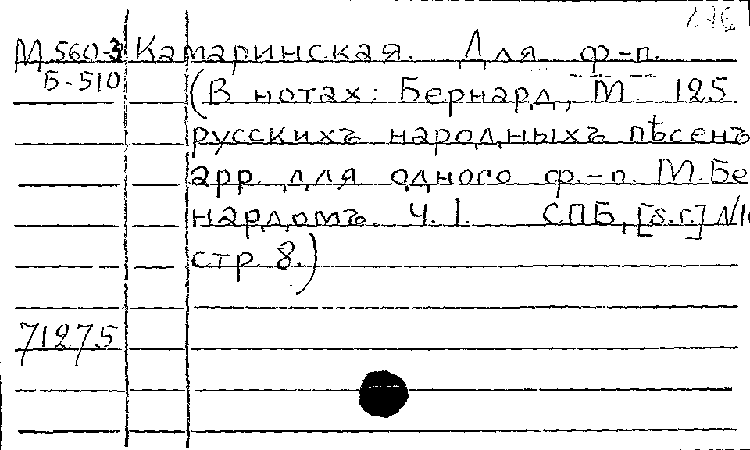 М 560-3 Камаринская. Для ф-п.
Б-510 (В нотах: Бернард, М 125
русскихъ народныхъ пѣсенъ
арр. для одного ф.-п. М. Бе
нардомъ. Ч. I. СПБ, [s.г.]
стр 8.)
71275